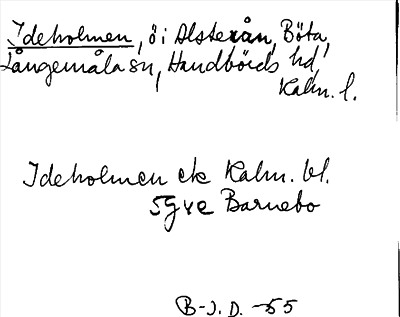 Ideholmen, ö i Alsterån, Böta,
Långemåla sn, Handbörds hd,
Kalm. l.
Ideholmen ek Kalm. bl.
5g ve Barnebo
B-J. D. -55